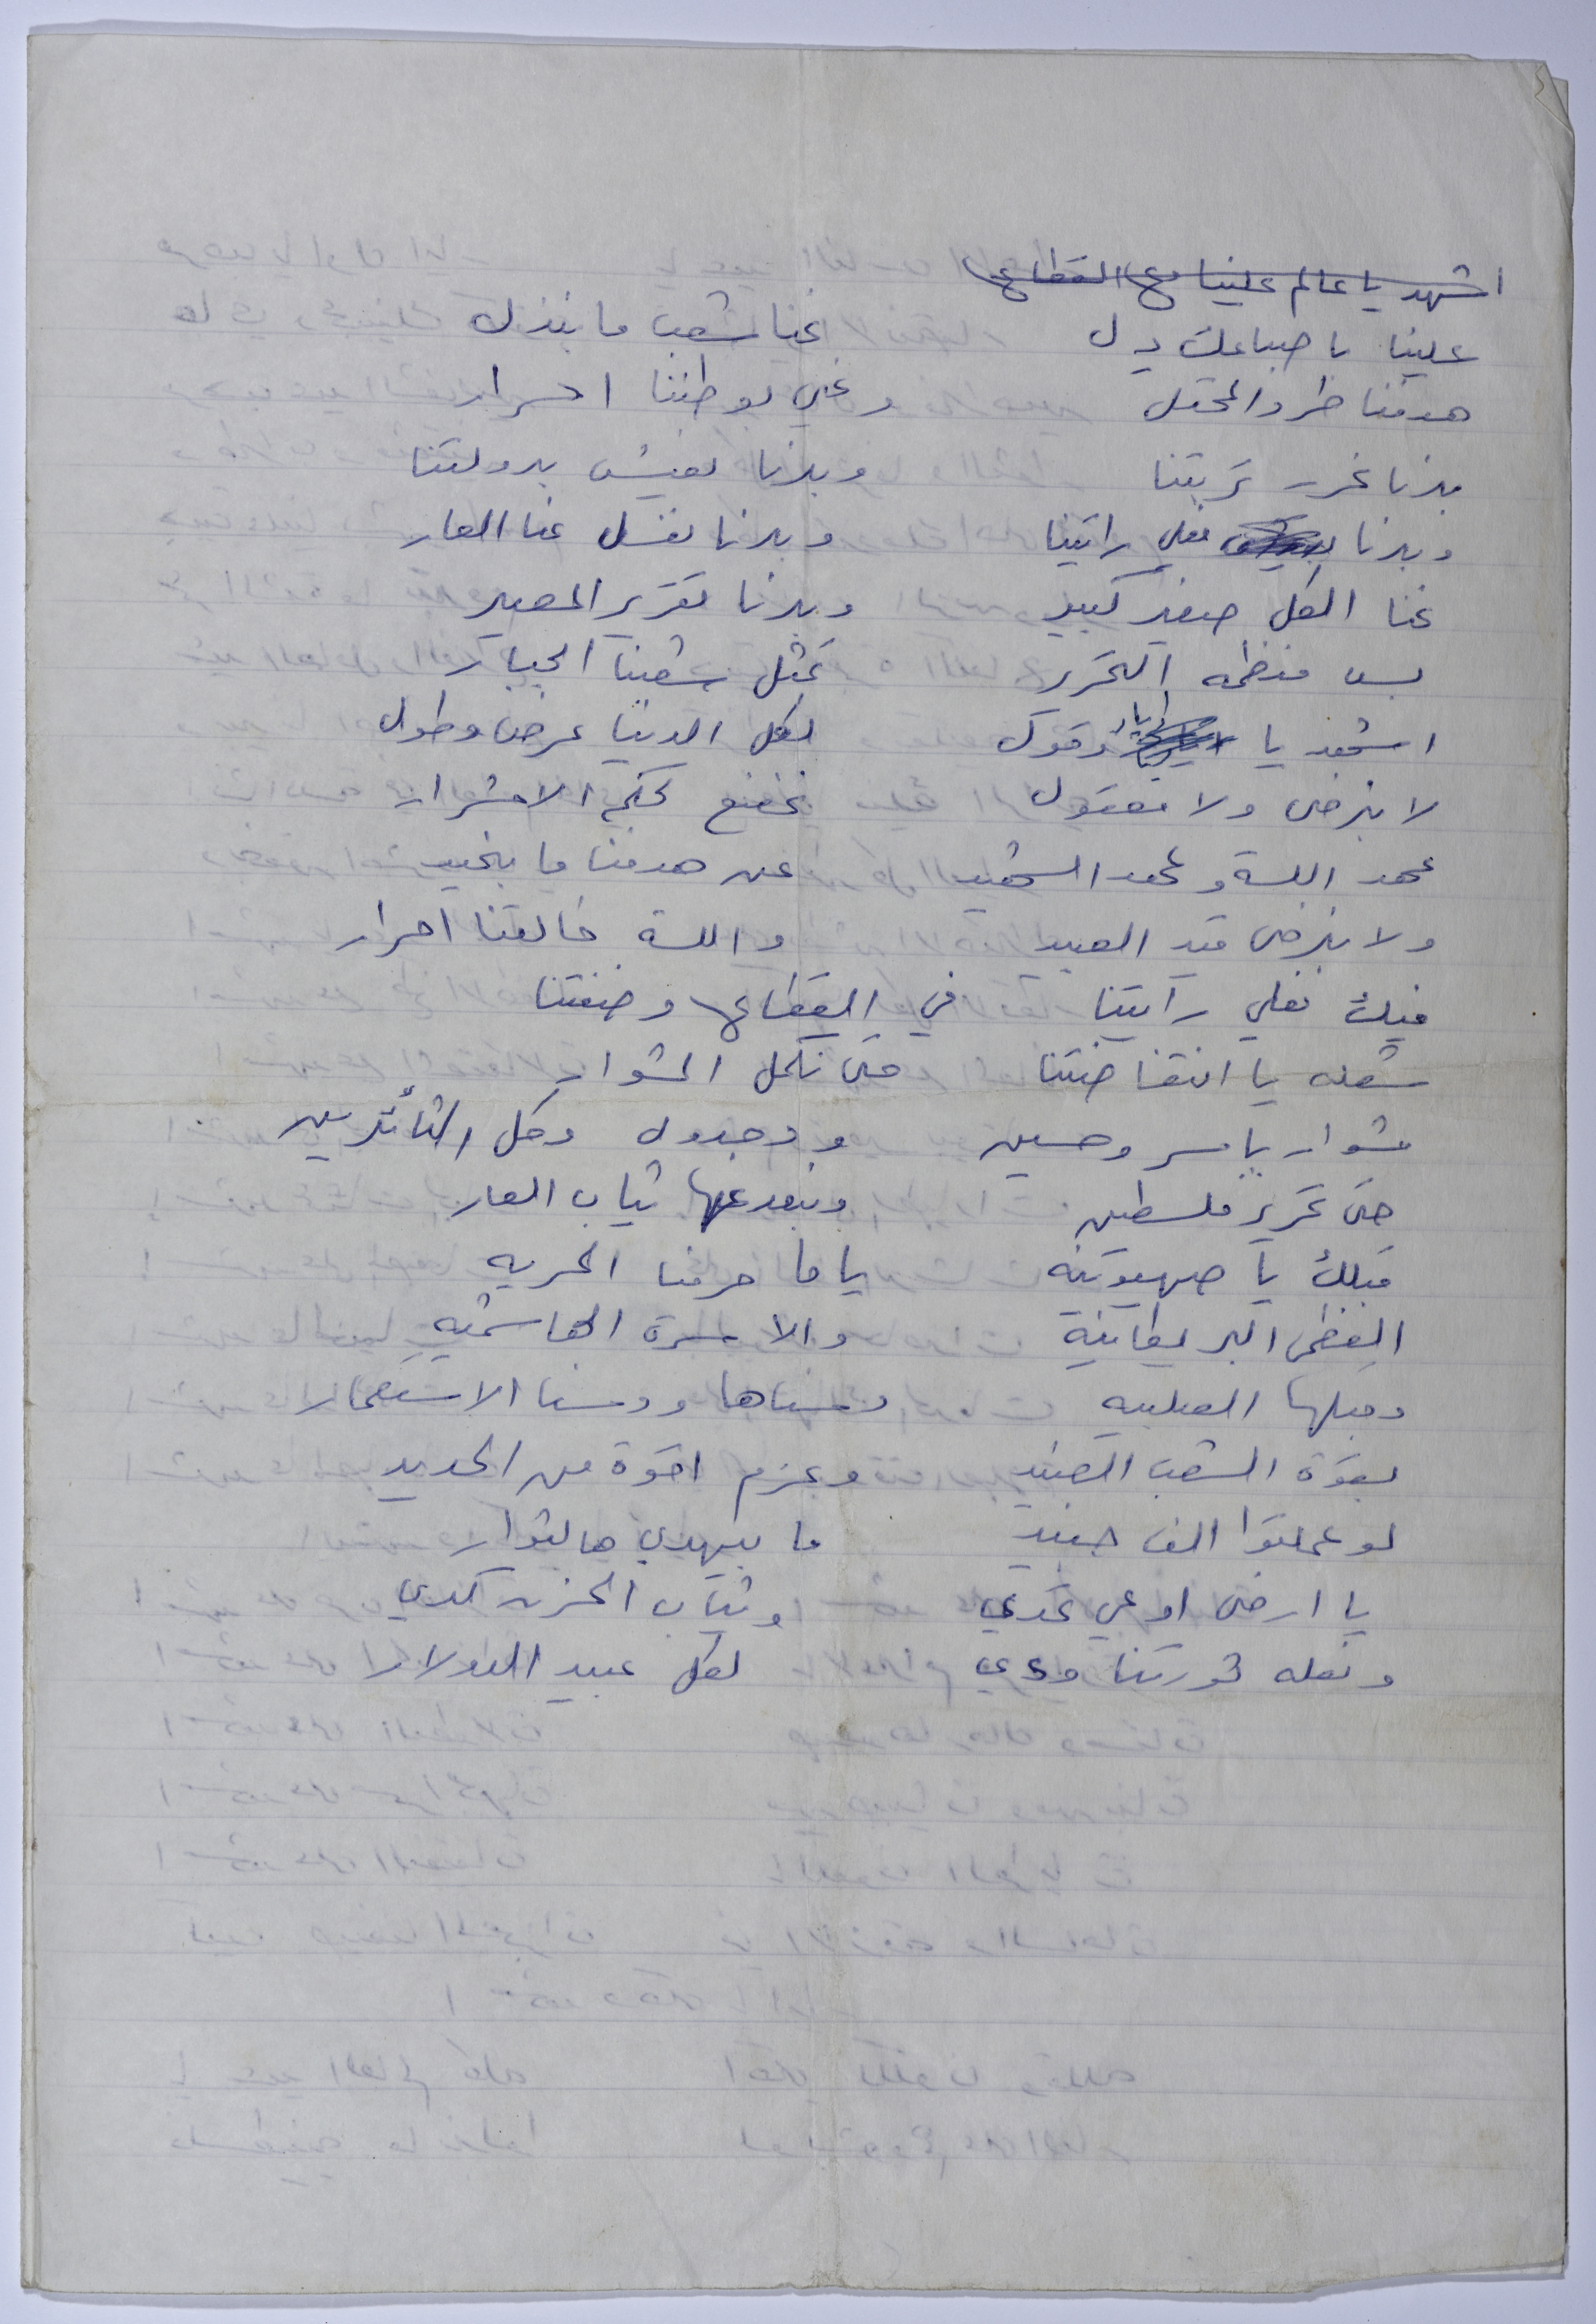 اشهد يا عالم علينا مع القطاع
علينا باصباعك دل احنا شعب ما بنذل
هدفنا طرد المحتل ونحي بوطننا احرار
بدنا نحرر تربتنا وبدنا نعيش بدولتنا
وبدنا نعلي رايتنا وبدنا نغسل عنا العار
حنا الكل صغير كبير وبدنا تقرير المصير
بس منظمه التحرير تمثل شعبنا الجبار
اشهد يا ايار وقول لكل الدنيا عرض وطول
لا بنرضى ولا معقول نخضع لحكم الاشرار
عهد الله وعهد الشهيد عن هدفنا ما بنحيد
ولا بنرضى قيد العبيد والله خالقنا احرار
فيك نعلي رايتنا في القطاع وضفتنا
شعله يا انتفاضتنا حتى نكمل المشوار
مشوار ياسر وحسين ووجدول وكل الثأئرين
حتى تحرير فلسطين ونبعد عنها ثياب العار
قبلك يا صهيونيه ياما حرمنا الحريه
العظمى البريطانية والاسرة الهاشميه
وقبلها الصليبيه دسناها ودسنا الاستعمار
بقوة الشعب العنيد وعزم اقوة من الحديد
لو عملتوا الف جنيد ما بيهدي هالثوار
يا ارضى اوعي تحدي وثياب الحزن كدي
وشعله ثورتنا ودي لكل عبيد الدولار